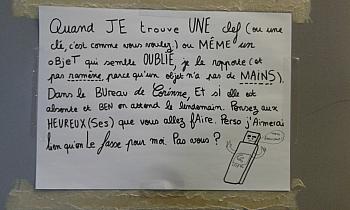 Quand JE trouve UNE clef (ou une
clé, c'est comme vous voulez) ou MÊME un
OBJET qui semble OUBLIÉ, je le rapporte (et
pas ramène, parce qu'un objet n'a pas de MAINS).
Dans le BUreau de Corinne, Et si elle est
absente et BEN on attend le lendemain. Pensez aux
HEUREUX(Ses) que vous allez fAire. Perso j'Aimerais
bien qu'on Le fasse pour moi. Pas vous ?